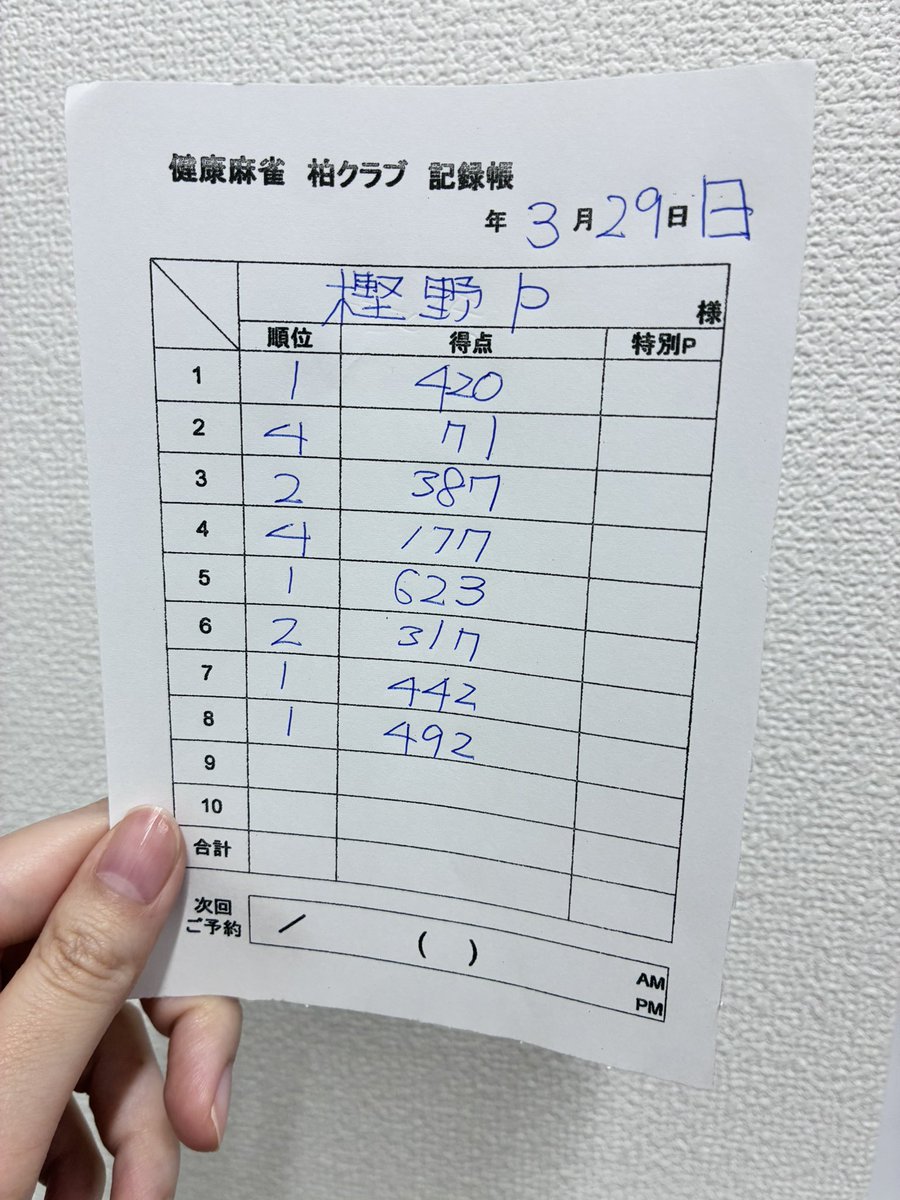 健康麻雀 柏クラブ 記録帳
年 3月29日 日
樫野P 様
順位 得点 特別P
1 1 420
2 4 71
3 2 387
4 4 177
5 1 623
6 2 317
7 1 442
8 1 492
9
10
合計
次回
ご予約
/ ( )
AM
PM